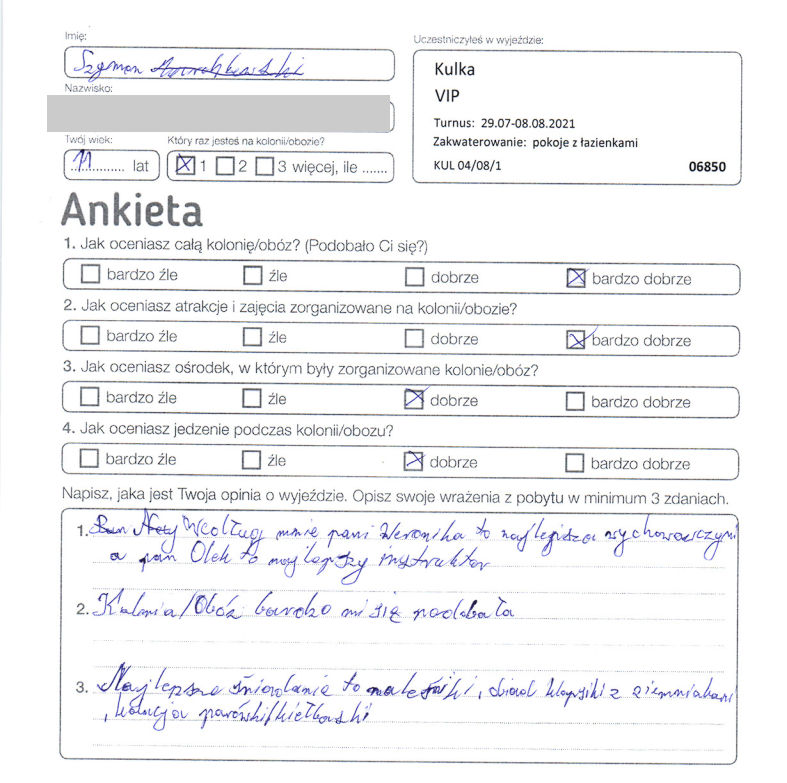 Imię:
Uczestniczyłeś w wyjeździe:
Szymon
Kulka
VIP
Nazwisko:
Turnus: 29.07-08.08.2021
Zakwaterowanie: pokoje z łazienkami
KUL 04/08/1 06850
Twój wiek: Który raz jesteś na kolonii/obozie?
11 lat 1 2 3 więcej, ile .......
Ankieta
1. Jak oceniasz całą kolonię/obóz? (Podobało Ci się?)
bardzo źle źle dobrze bardzo dobrze
2. Jak oceniasz atrakcje i zajęcia zorganizowane na kolonii/obozie?
bardzo źle źle dobrze bardzo dobrze
3. Jak oceniasz ośrodek, w którym były zorganizowane kolonie/obóz?
bardzo źle źle dobrze bardzo dobrze
4. Jak oceniasz jedzenie podczas kolonii/obozu?
bardzo źle źle dobrze bardzo dobrze
Napisz, jaka jest Twoja opinia o wyjeździe. Opisz swoje wrażenia z pobytu w minimum 3 zdaniach.
1. Według mnie pani Weronika to najlepsza wychowawczyni
a pan Olek to najlepszy instruktor
2. Kolonia/Obóz bardzo mi się podobała
3. Najlepsze śniadanie to naleśniki, obiad klopsiki z ziemniakami
, kolacja parówki/kiełbaski